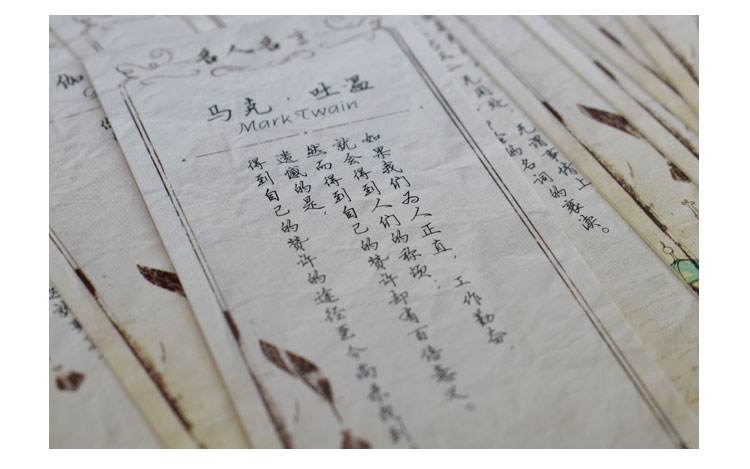 名人名言
马克·吐温
Mark Twain
如果我们为人正直,工作勤奋,
就会得到人们的称颂;
然而得到自己的赞许却有百倍意义。
遗憾的是,
得到自己的赞许的途径至今尚未找到
无谓事情上
一无用处,
的名词的亵渎。
伽